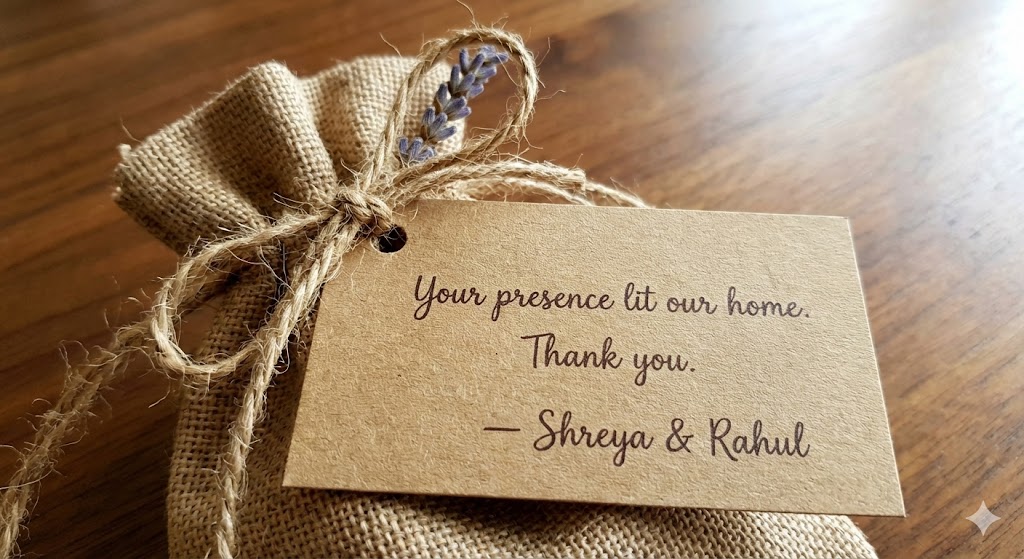 Your presence lit our home.
Thank you.
— Shreya & Rahul